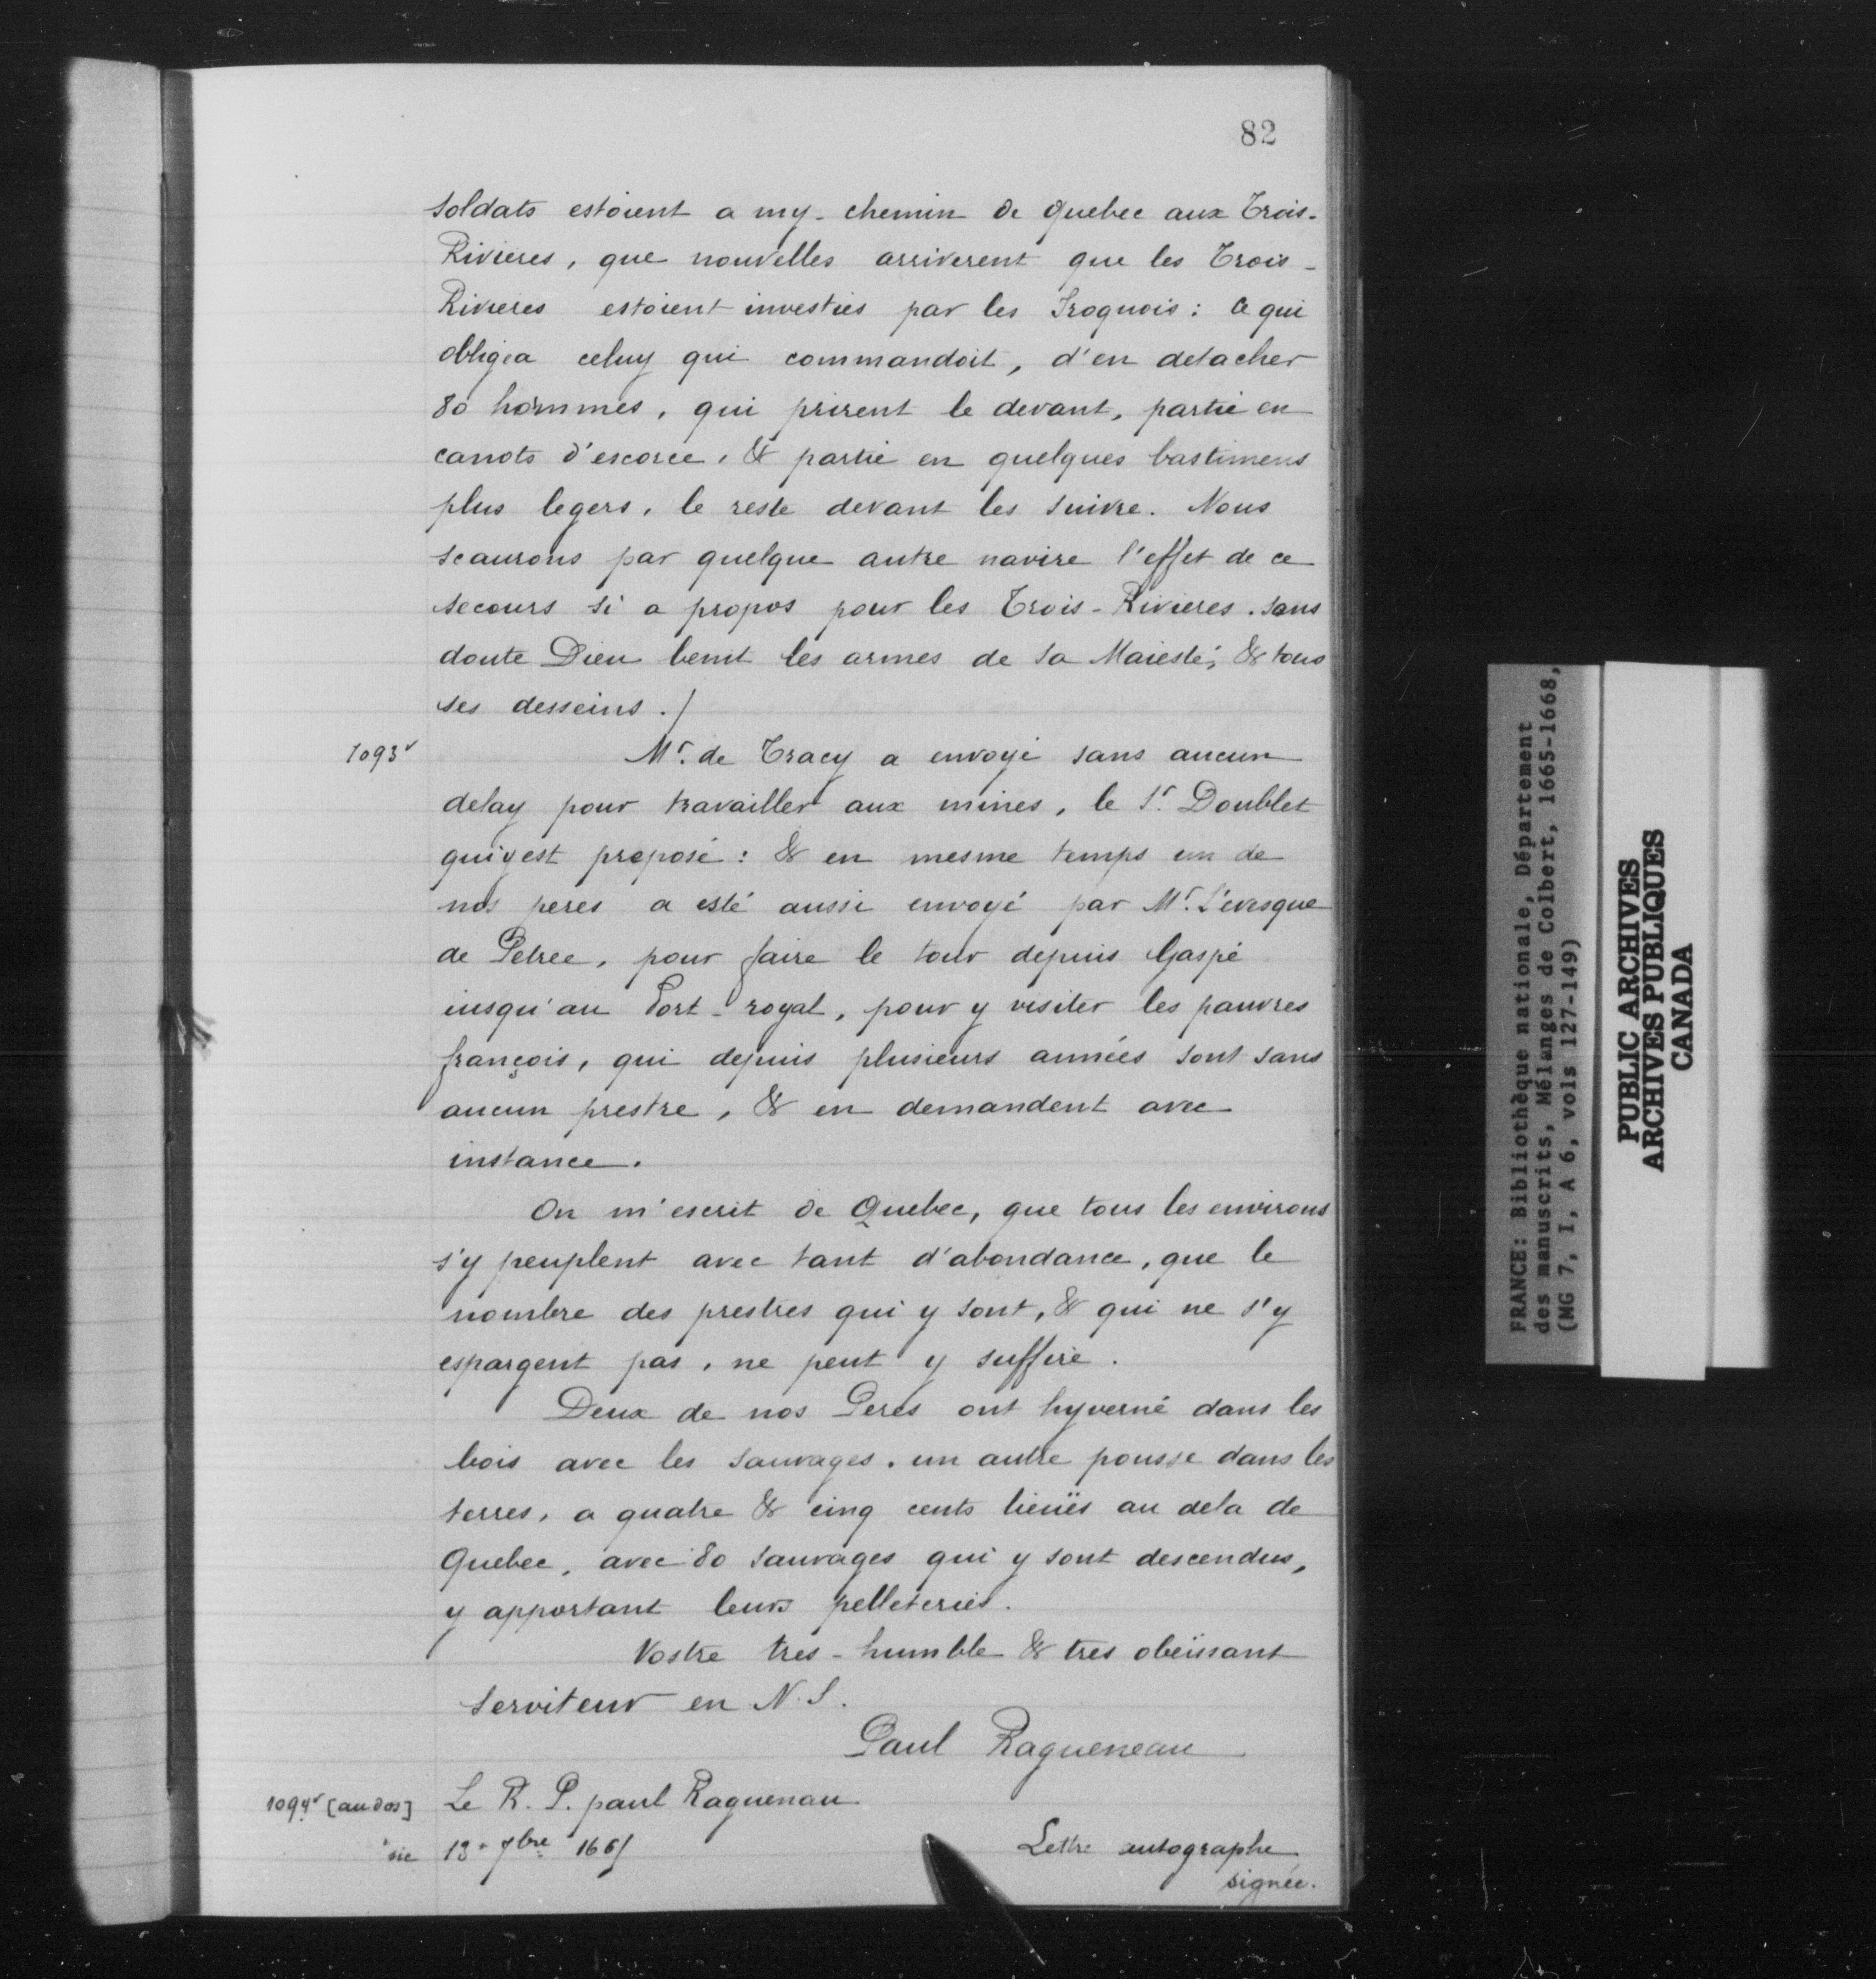 82
soldats estoient a my-chemin de quebec aux Trois-
Rivieres, que nouvelles arriverent que les Trois-
Rivieres estoient investies par les Iroquois : Ce qui
obligea celuy qui commandoit, d'en detacher
80 hommes, qui prirent le devant, partie en
canots d'escorce, & partie en quelques bastimens
plus legers, le reste devant les suivre. Nous
scaurons par quelque autre navire l'effet de ce
secours si a propos pour les Trois-Rivieres. sans
doute Dieu benit les armes de sa Maiesté, & tous
ses desseins./
1093v Mr. de Tracy a envoyé sans aucun
delay pour travailler aux mines, le Sr. Doublet
qui y est preposé : & en mesme temps un de
nos peres a esté aussi envoyé par Mr. L'évesque
de Petree, pour faire le tour depuis Gaspé
iusqu'au Port-royal, pour y visiter les pauvres
françois, qui depuis plusieurs années sont sans
aucun prestre, & en demandent avec
instance.
On m'escrit de Quebec, que tous les environs
s'y peuplent avec tant d'abondance, que le
nombre des prestres qui y sont, & qui ne s'y
espargent pas, ne peut y suffire.
Deux de nos Peres ont hyverné dans les
bois avec les sauvages. un autre pousse dans les
terres, a quatre & cinq cents lieuës au dela de
Quebec, avec 80 sauvages qui y sont descendus,
y apportant leurs pelleteries.
Vostre tres-humble & tres obeïssant
serviteur en N.S.
Paul Ragueneau
1094v [au dos] Le R. P. paul Raguenau
sic 13e 7bre 1665
Lettre autographe
signée.
FRANCE: Bibliothèque nationale, Département
des manuscrits, Mélanges de Colbert, 1665-1668,
(MG 7, I, A 6, vols 127-149)
PUBLIC ARCHIVES
ARCHIVES PUBLIQUES
CANADA